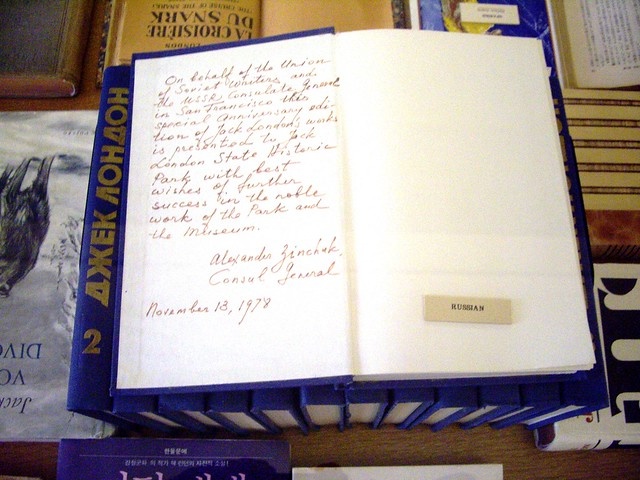 LA CROISIÈRE
DU SNARK
(THE CRUISE OF THE SNARK)
LONDON
ДЖЕК ЛОНДОН
2
On behalf of the Union
of Soviet Writers and
the USSR Consulate General
in San Francisco this
special anniversary edi-
tion of Jack London's works
is presented to Jack
London State Historic
Park with best
wishes of further
success in the noble
work of the Park and
the Museum.
Alexander Zinchuk,
Consul General
November 13, 1978
RUSSIAN
Jack
VO
DIVO